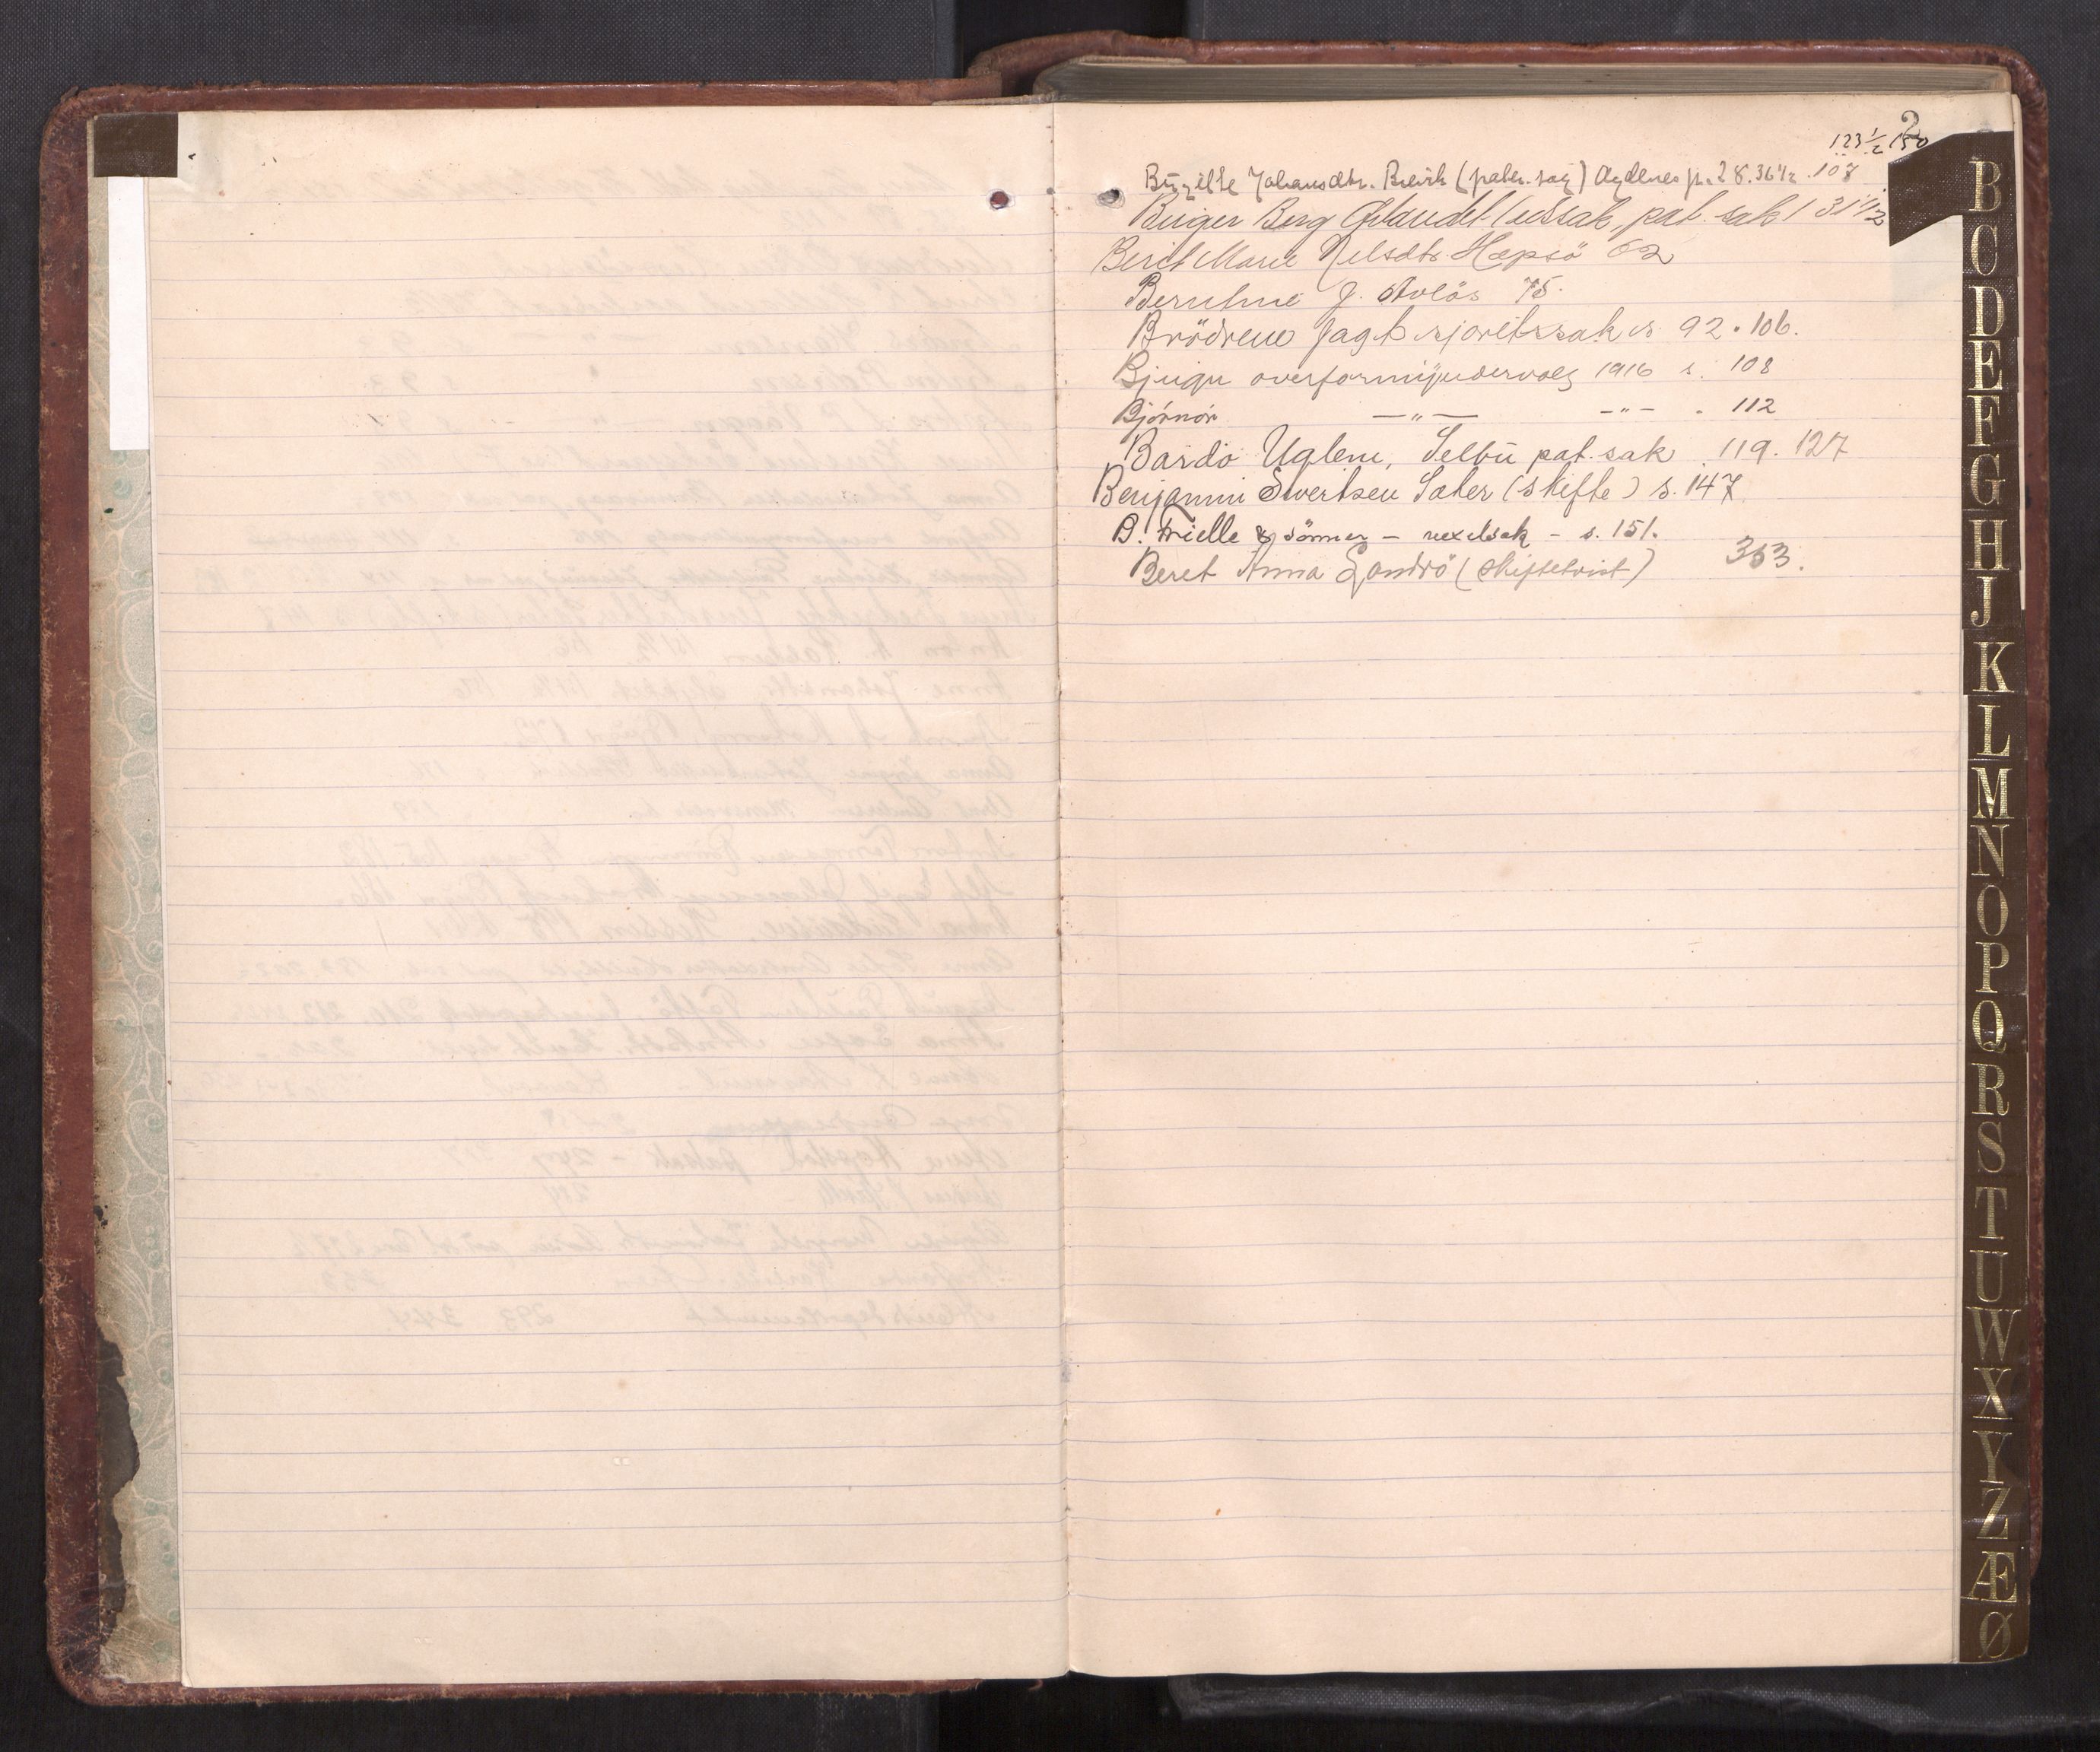 2
123 1/2 150
Birgitte Johansdtr. Brevik (pater. sag) Agdenes p. 28. 36 1/2 . 108
Birger Berg Ørlandet (udsak, pat. sak) 31 1/2
Berit Marie Nelsdtr. Hepsö 62
Berntine J. 75.
Brödrene Jagt sjoretssak s. 92 . 106.
Bjugn overformyndervalg 1916 s. 108
Björnör —"— -"- . 112
Bardo Uglem, Selbu pat. sak . 119. 127
Benjamin Sivertsen Sæter (skifte) s. 147
B. Frielle & sönner – vexelsak – s. 151.
Beret Anna Sandrö (skiftetvist) 353.
B
C
D
E
F
G
H
J
K
L
M
N
O
P
Q
R
S
T
U
W
X
Y
Z
Æ
Ø